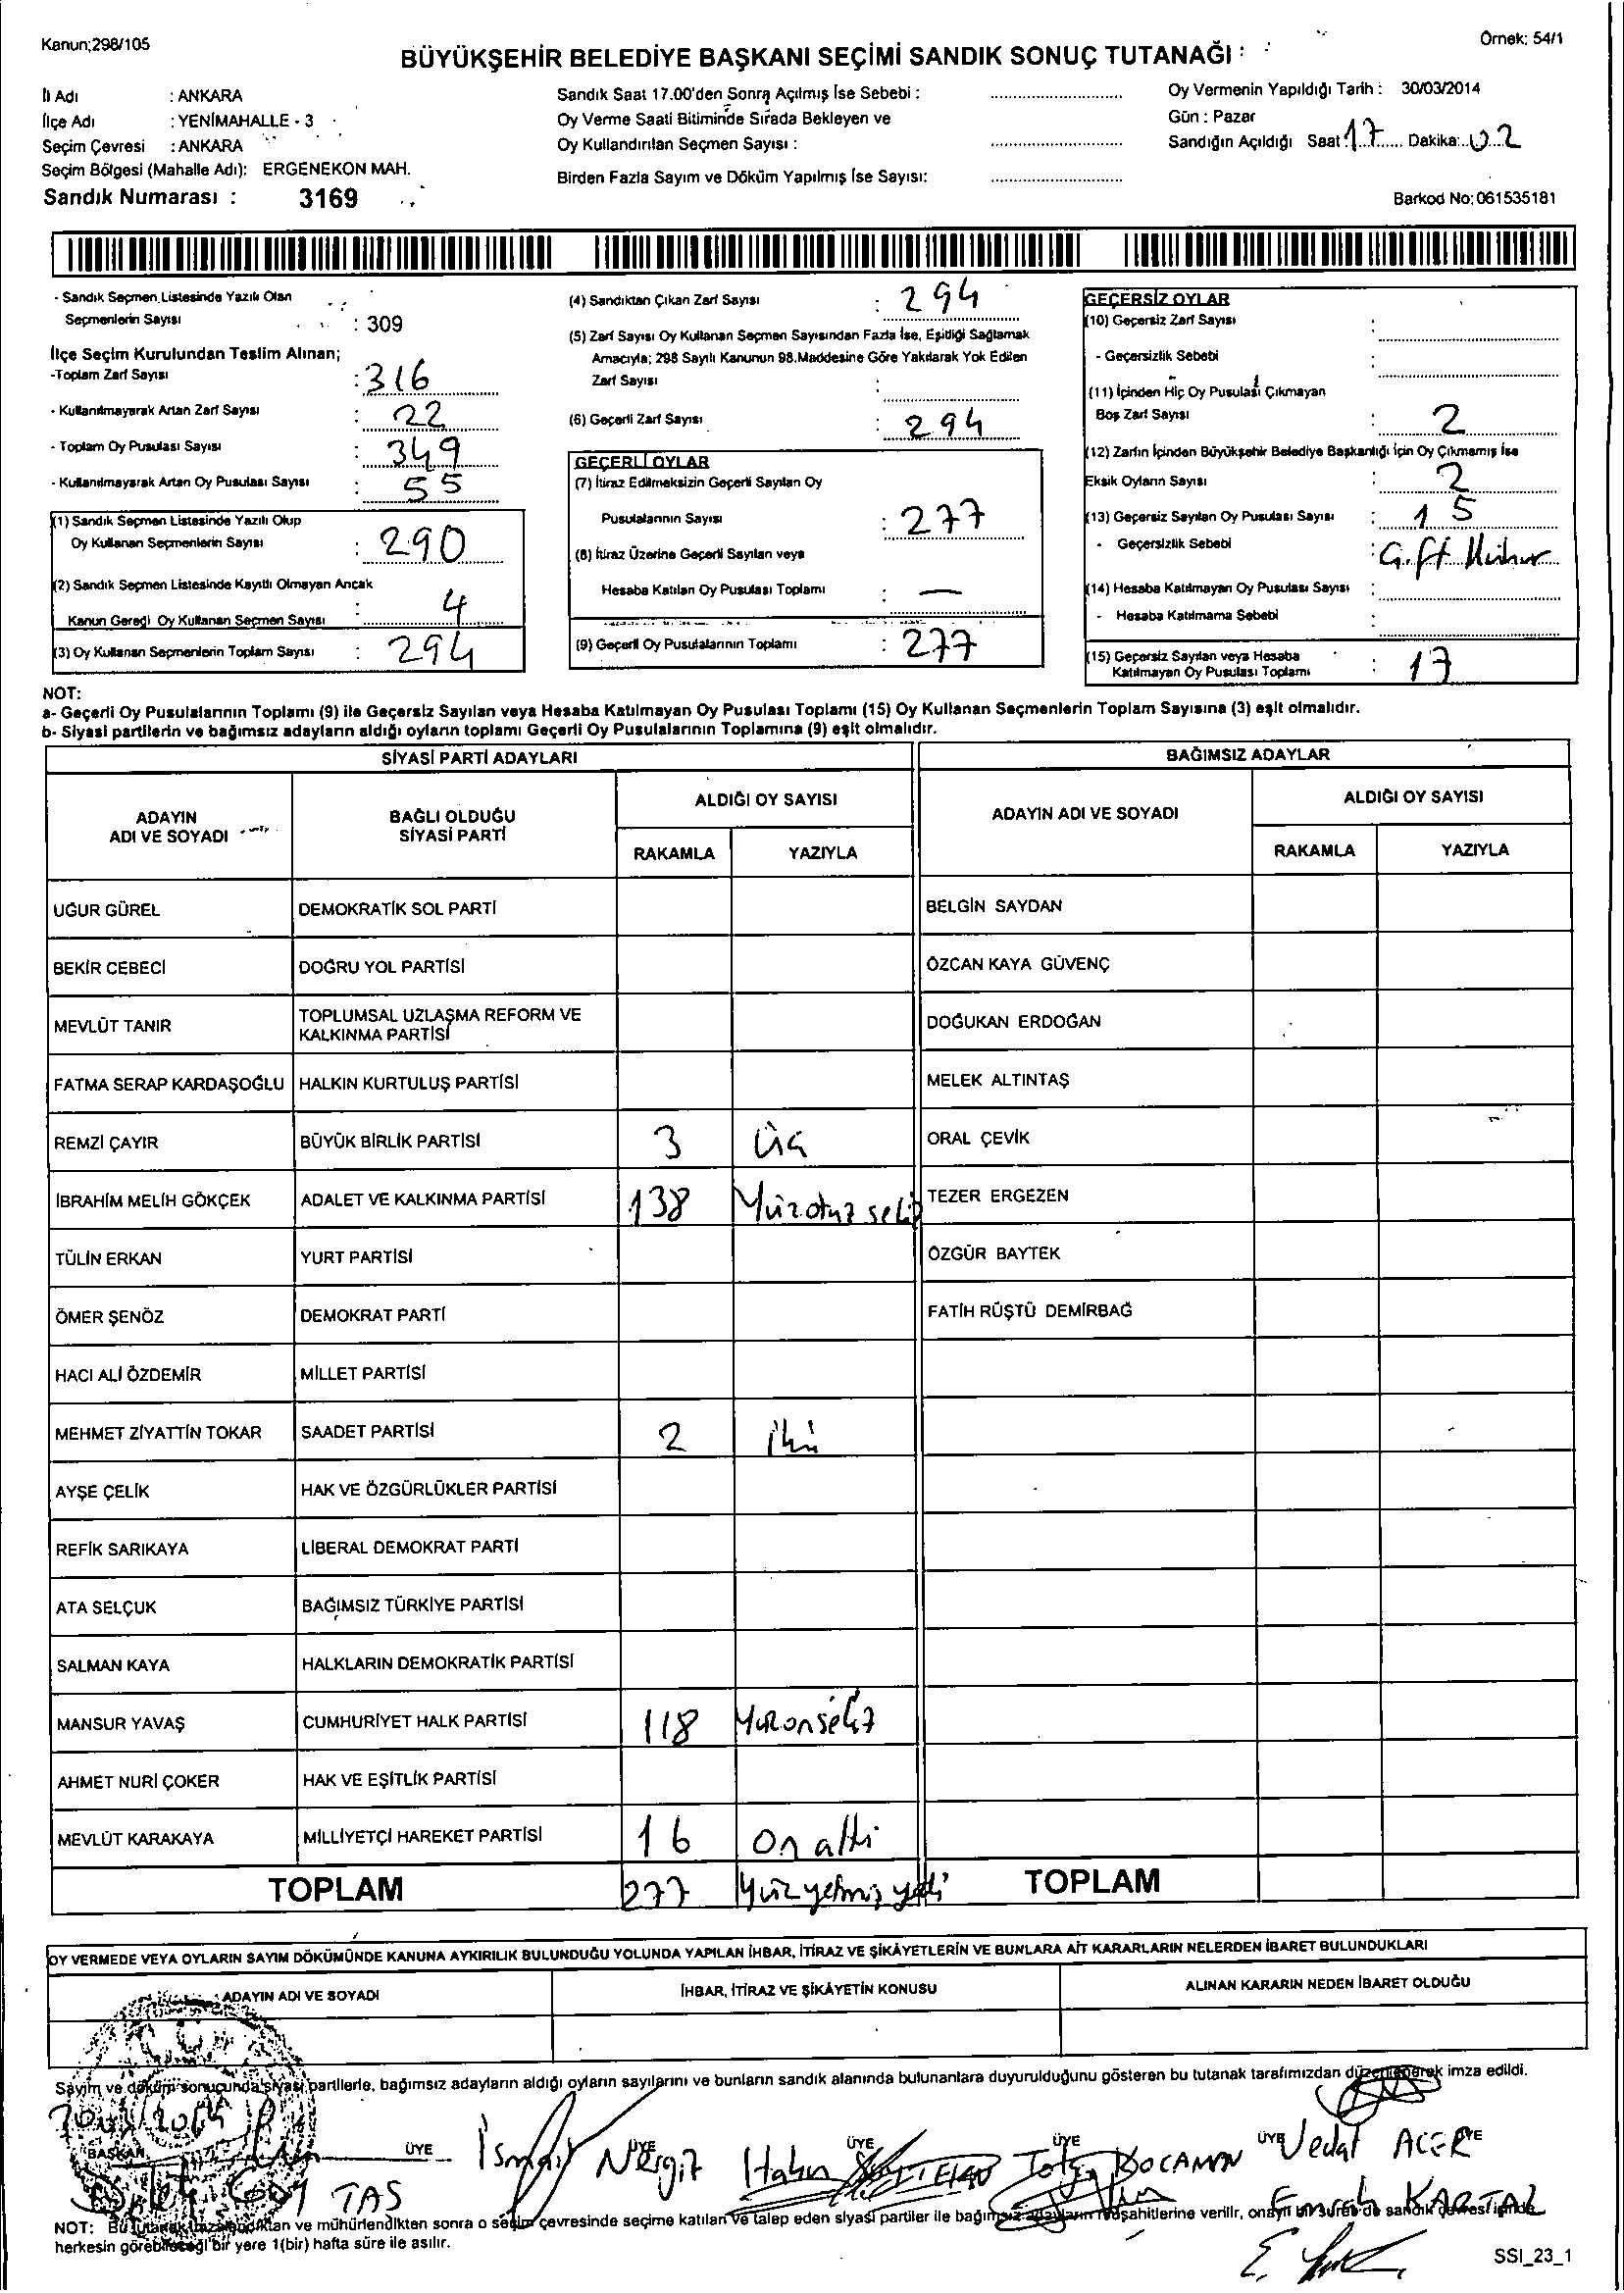 Kanun;298/105
Örnek: 54/1
BÜYÜKŞEHİR BELEDİYE BAŞKANI SEÇİMİ SANDIK SONUÇ TUTANAĞI :
İl Adı : ANKARA
İlçe Adı : YENİMAHALLE - 3
Seçim Çevresi : ANKARA
Seçim Bölgesi (Mahalle Adı): ERGENEKON MAH.
Sandık Numarası : 3169
Sandık Saat 17.00'den Sonra Açılmış İse Sebebi :
Oy Verme Saati Bitiminde Sırada Bekleyen ve
Oy Kullandırılan Seçmen Sayısı :
Birden Fazla Sayım ve Döküm Yapılmış İse Sayısı:
Oy Vermenin Yapıldığı Tarih : 30/03/2014
Gün : Pazar
Sandığın Açıldığı Saat 17 Dakika: 02
Barkod No: 061535181
- Sandık Seçmen Listesinde Yazılı Olan
Seçmenlerin Sayısı : 309
İlçe Seçim Kurulundan Teslim Alınan;
-Toplam Zarf Sayısı : 316
- Kullanılmayarak Artan Zarf Sayısı : 22
- Toplam Oy Pusulası Sayısı : 349
- Kullanılmayarak Artan Oy Pusulası Sayısı : 55
(1) Sandık Seçmen Listesinde Yazılı Olup
Oy Kullanan Seçmenlerin Sayısı : 290
(2) Sandık Seçmen Listesinde Kayıtlı Olmayan Ancak
Kanun Gereği Oy Kullanan Seçmen Sayısı : 4
(3) Oy Kullanan Seçmenlerin Toplam Sayısı : 294
(4) Sandıktan Çıkan Zarf Sayısı : 294
(5) Zarf Sayısı Oy Kullanan Seçmen Sayısından Fazla İse, Eşitliği Sağlamak
Amacıyla; 298 Sayılı Kanunun 98.Maddesine Göre Yakılarak Yok Edilen
Zarf Sayısı :
(6) Geçerli Zarf Sayısı : 294
GEÇERLİ OYLAR
(7) İtiraz Edilmeksizin Geçerli Sayılan Oy
Pusulalarının Sayısı : 277
(8) İtiraz Üzerine Geçerli Sayılan veya
Hesaba Katılan Oy Pusulası Toplamı : —
(9) Geçerli Oy Pusulalarının Toplamı : 277
GEÇERSİZ OYLAR
(10) Geçersiz Zarf Sayısı :
- Geçersizlik Sebebi :
(11) İçinden Hiç Oy Pusulası Çıkmayan
Boş Zarf Sayısı : 2
(12) Zarfın İçinden Büyükşehir Belediye Başkanlığı İçin Oy Çıkmamış İse
Eksik Oyların Sayısı : 2
(13) Geçersiz Sayılan Oy Pusulası Sayısı : 15
- Geçersizlik Sebebi : Çift Mühür
(14) Hesaba Katılmayan Oy Pusulası Sayısı :
- Hesaba Katılmama Sebebi :
(15) Geçersiz Sayılan veya Hesaba
Katılmayan Oy Pusulası Toplamı : 17
NOT:
a- Geçerli Oy Pusulalarının Toplamı (9) ile Geçersiz Sayılan veya Hesaba Katılmayan Oy Pusulası Toplamı (15) Oy Kullanan Seçmenlerin Toplam Sayısına (3) eşit olmalıdır.
b- Siyasi partilerin ve bağımsız adayların aldığı oyların toplamı Geçerli Oy Pusulalarının Toplamına (9) eşit olmalıdır.
SİYASİ PARTİ ADAYLARI
BAĞIMSIZ ADAYLAR
ADAYIN ADI VE SOYADI
BAĞLI OLDUĞU SİYASİ PARTİ
ALDIĞI OY SAYISI
RAKAMLA YAZIYLA
ADAYIN ADI VE SOYADI
ALDIĞI OY SAYISI
RAKAMLA YAZIYLA
UĞUR GÜREL DEMOKRATİK SOL PARTİ BELGİN SAYDAN
BEKİR CEBECİ DOĞRU YOL PARTİSİ ÖZCAN KAYA GÜVENÇ
MEVLÜT TANIR TOPLUMSAL UZLAŞMA REFORM VE KALKINMA PARTİSİ DOĞUKAN ERDOĞAN
FATMA SERAP KARDAŞOĞLU HALKIN KURTULUŞ PARTİSİ MELEK ALTINTAŞ
REMZİ ÇAYIR BÜYÜK BİRLİK PARTİSİ 3 Üç ORAL ÇEVİK
İBRAHİM MELİH GÖKÇEK ADALET VE KALKINMA PARTİSİ 138 Yüzotuz sekiz TEZER ERGEZEN
TÜLİN ERKAN YURT PARTİSİ ÖZGÜR BAYTEK
ÖMER ŞENÖZ DEMOKRAT PARTİ FATİH RÜŞTÜ DEMİRBAĞ
HACI ALİ ÖZDEMİR MİLLET PARTİSİ
MEHMET ZİYATTİN TOKAR SAADET PARTİSİ 2 iki
AYŞE ÇELİK HAK VE ÖZGÜRLÜKLER PARTİSİ
REFİK SARIKAYA LİBERAL DEMOKRAT PARTİ
ATA SELÇUK BAĞIMSIZ TÜRKİYE PARTİSİ
SALMAN KAYA HALKLARIN DEMOKRATİK PARTİSİ
MANSUR YAVAŞ CUMHURİYET HALK PARTİSİ 118 Yüzonsekiz
AHMET NURİ ÇOKER HAK VE EŞİTLİK PARTİSİ
MEVLÜT KARAKAYA MİLLİYETÇİ HAREKET PARTİSİ 16 on altı
TOPLAM 277 Yüzyetmiş yedi TOPLAM
OY VERMEDE VEYA OYLARIN SAYIM DÖKÜMÜNDE KANUNA AYKIRILIK BULUNDUĞU YOLUNDA YAPILAN İHBAR, İTİRAZ VE ŞİKÂYETLERİN VE BUNLARA AİT KARARLARIN NELERDEN İBARET BULUNDUKLARI
ADAYIN ADI VE SOYADI İHBAR, İTİRAZ VE ŞİKÂYETİN KONUSU ALINAN KARARIN NEDEN İBARET OLDUĞU
Sayım ve döküm sonucunda siyasi partilerle, bağımsız adayların aldığı oyların sayılarını ve bunların sandık alanında bulunanlara duyurulduğunu gösteren bu tutanak tarafımızdan düzenlenerek imza edildi.
BAŞKAN ÜYE ÜYE ÜYE ÜYE ÜYE ÜYE
İsmail Nergiz Hakan KOCAMAN Vedat ACER
TAS Emrah KARTAL
NOT: Bu tutanak imzalandıktan ve mühürlendikten sonra o seçim çevresinde seçime katılan ve talep eden siyasi partiler ile bağımsız adayların müşahitlerine verilir, onaylı bir sureti de sandık çevresi içinde
herkesin görebileceği bir yere 1(bir) hafta süre ile asılır.
SSI_23_1